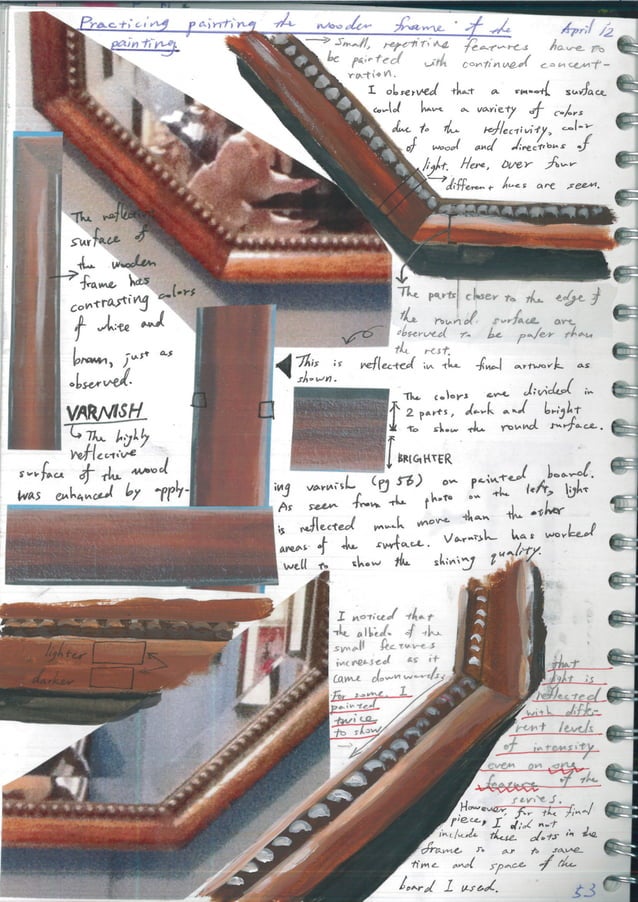 Practicing painting the wooden frame of the
painting.
April 12
→ Small, repetitive features have to
be painted with continued concent-
ration.
I observed that a smooth surface
could have a variety of colors
due to the reflectivity, color
of wood and directions of
light. Here, over four
→ different hues are seen.
The reflective
surface of
the wooden
frame has
contrasting colors
of white and
brown, just as
observed.
The parts closer to the edge of
the round surface are
observed to be paler than
the rest.
This is reflected in the final artwork as
shown.
The colors are divided in
2 parts, dark and bright
to show the round surface.
BRIGHTER
VARNISH
↳ The highly
reflective
surface of the wood
was enhanced by apply-
ing varnish (pg 56) on painted board.
As seen from the photo on the left, light
is reflected much more than the other
areas of the surface. Varnish has worked
well to show the shining quality.
lighter
darker
I noticed that
the albedo of the
small features
increased as it
came downwards.
For some, I
painted
twice
to show
→
that
light is
reflected
with diffe-
rent levels
of intensity
even on one
feature of the
series.
However, for the final
piece, I did not
include these dots in the
frame so as to save
time and space of the
board I used.
53